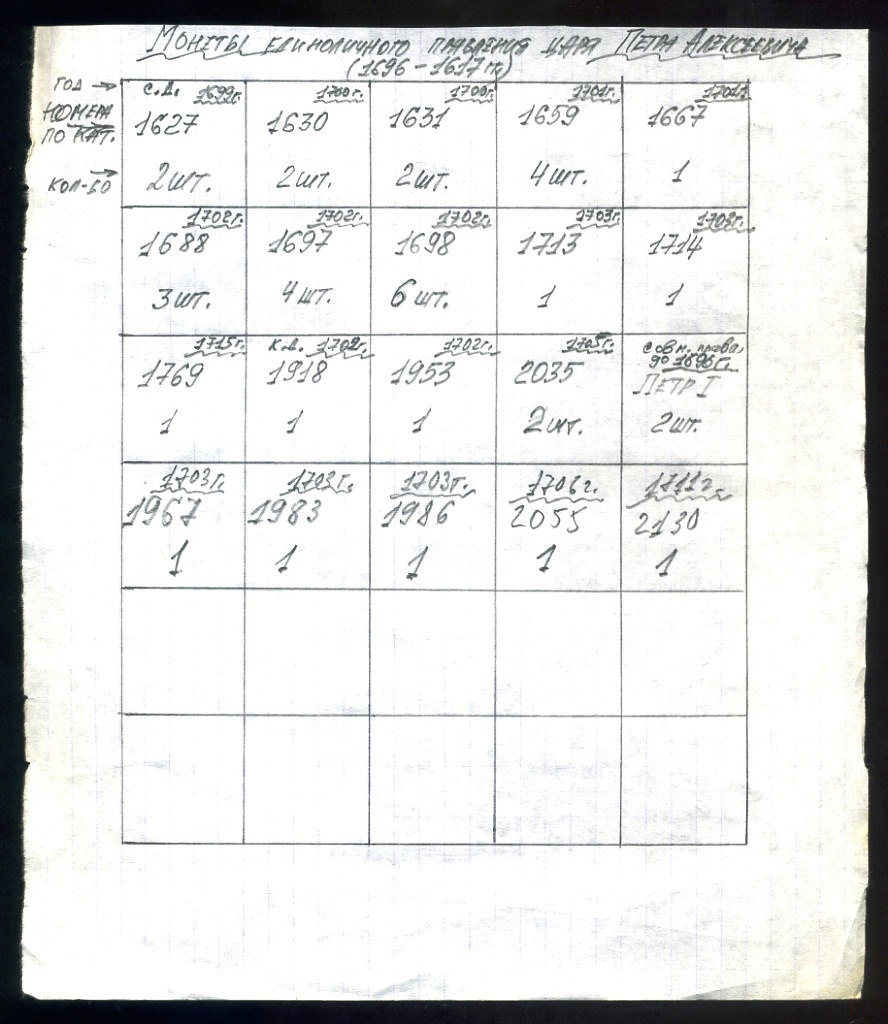 Монеты единоличного правления царя Петра Алексеевича
(1696 – 1617 гг.)
год → с.д. 1699г. 1700г. 1700г. 1701г.
номера по кат. 1627 1630 1631 1659 1667
кол-во → 2шт. 2шт. 2шт. 4шт. 1
1702г. 1702г. 1702г. 1703г.
1688 1697 1698 1713 1714
3шт. 4шт. 6шт. 1 1
1715г. к.д. 1702г. 1702г. 1705г. совм. прав. до 1696г.
1769 1918 1953 2035 Петр I
1 1 1 2шт. 2шт.
1703г. 1703г. 1703г. 1706г. 1711г.
1967 1983 1986 2055 2130
1 1 1 1 1